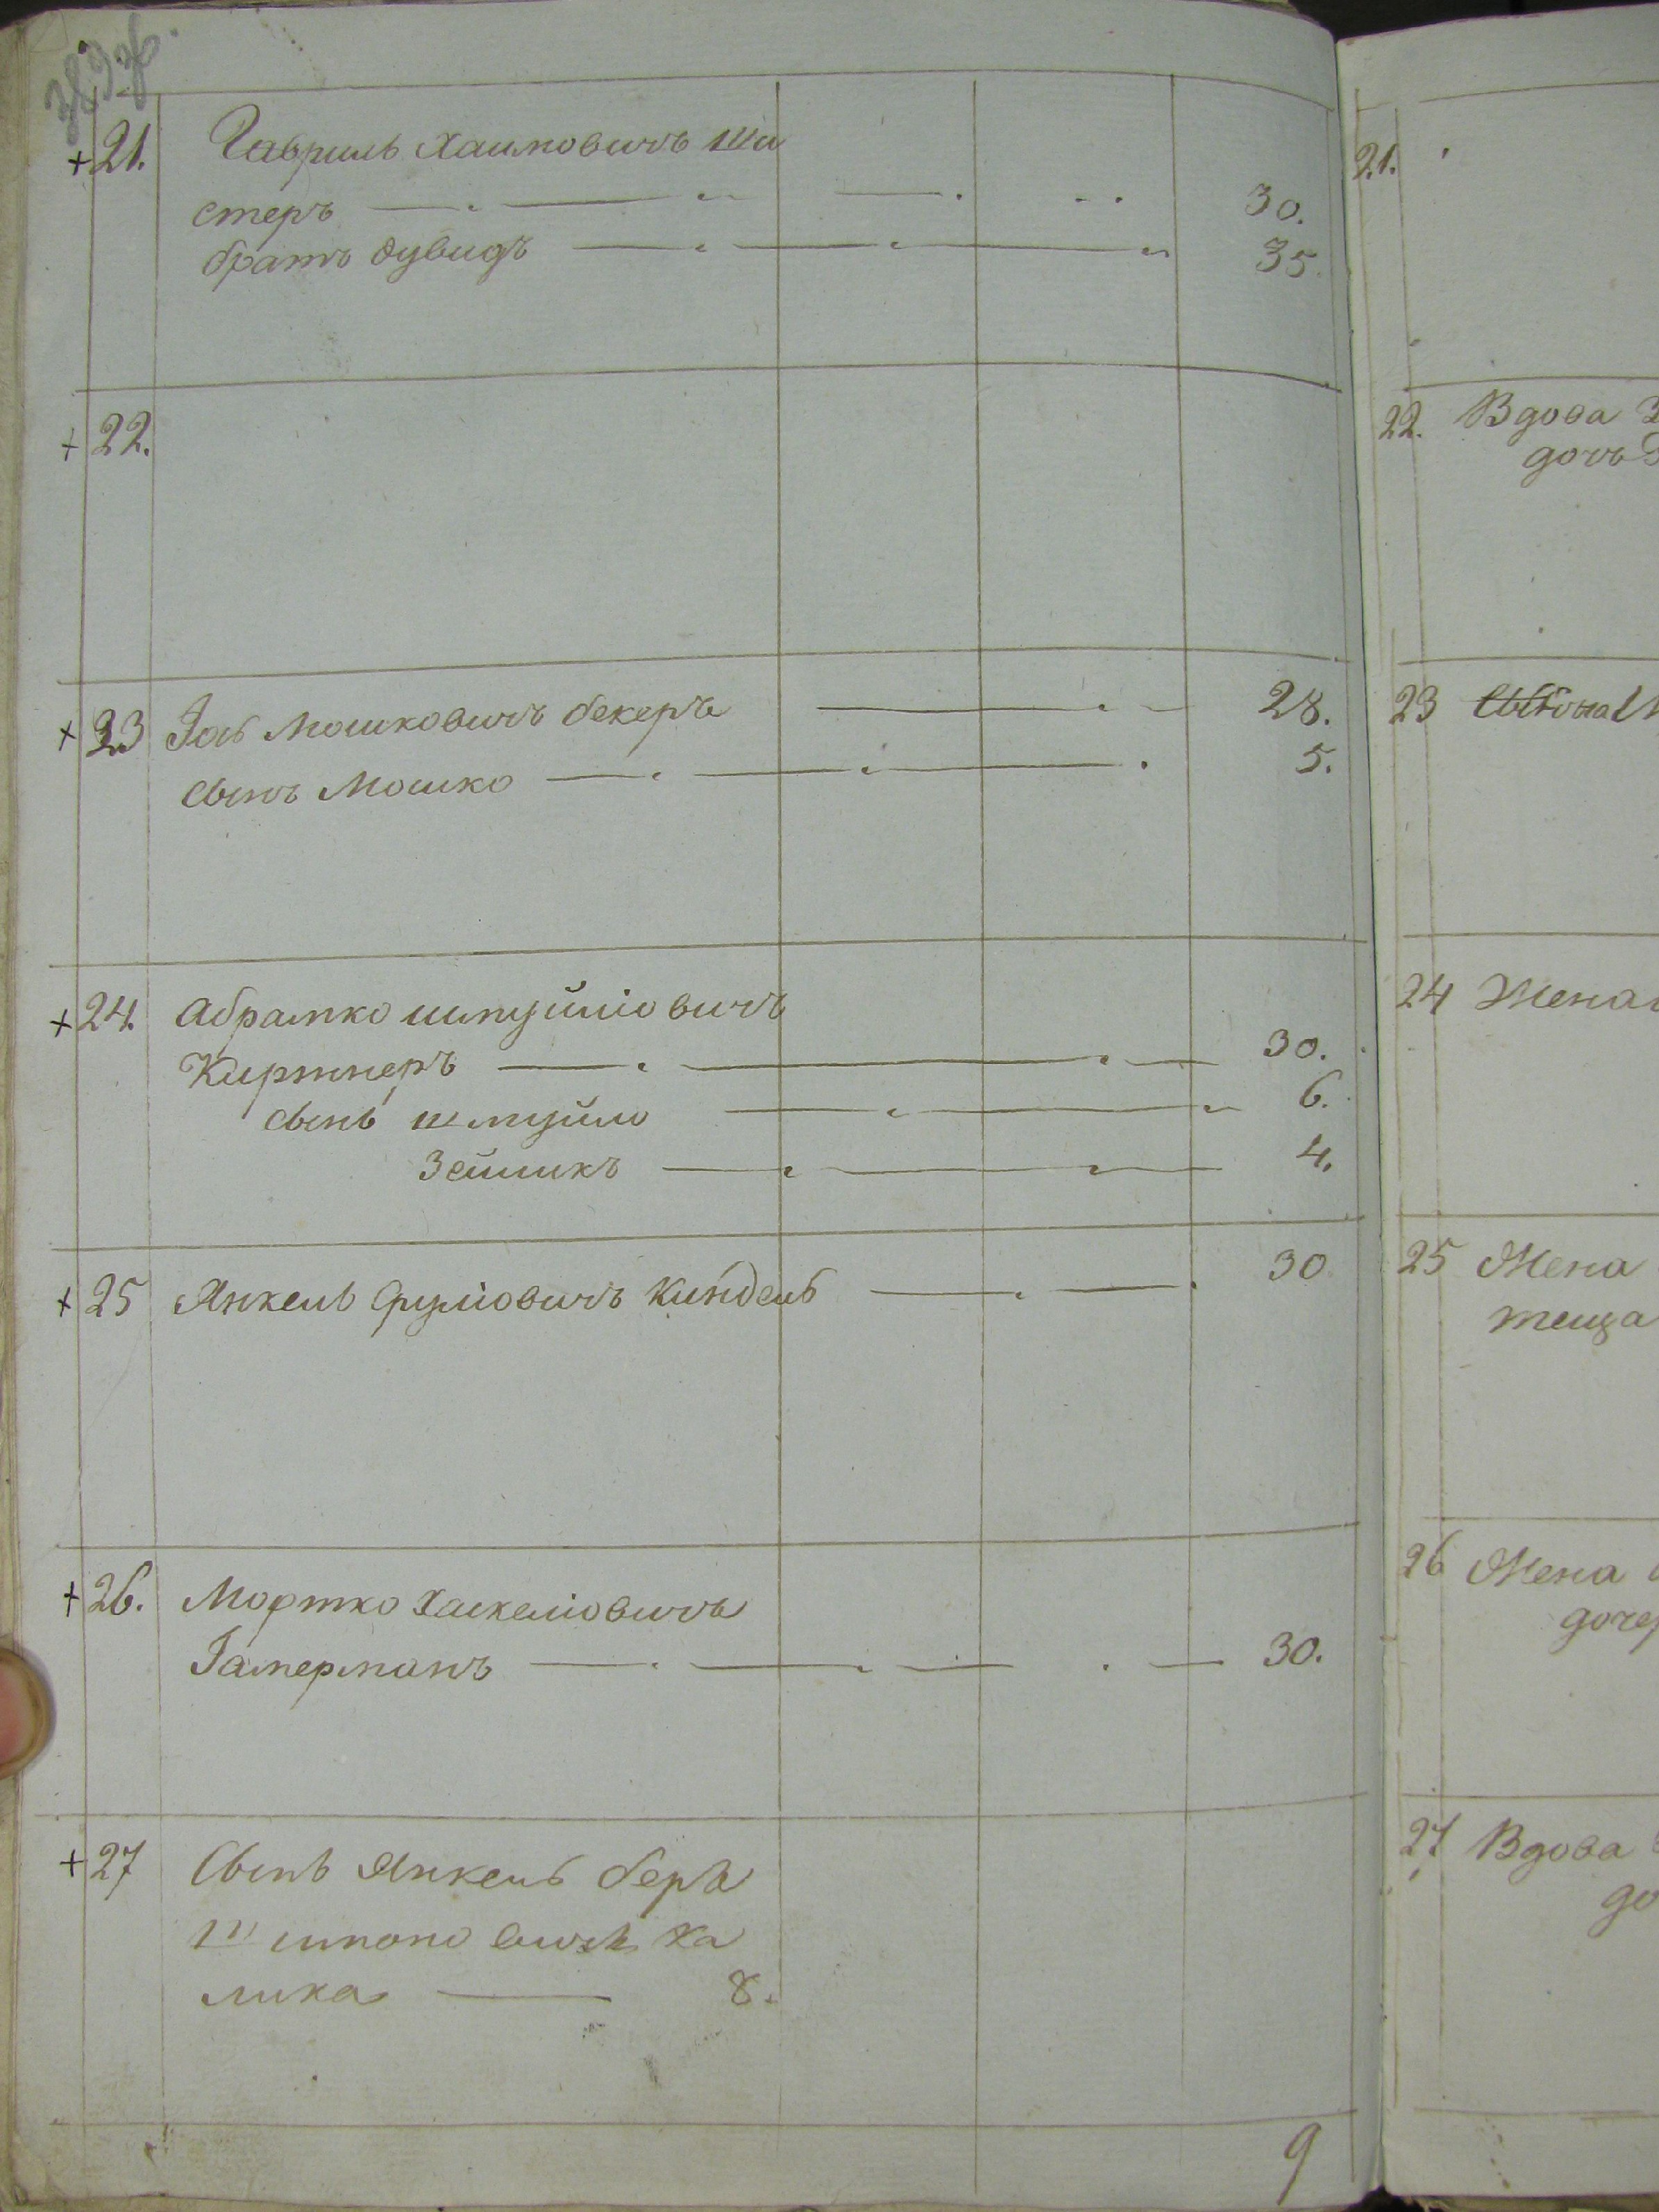 + 21. Гавриль Хаимовичъ Ши
стеръ 30.
братъ дувидъ 35.
+ 22.
+ 23 Іось Мошковичъ бекеръ 28.
сынъ Мошко 5.
+ 24. Абрамко шмуйліовичъ
Киртнеръ 30.
сынъ шмуйло 6.
Зейликъ 4.
+ 25 Янкель Сруліовичъ Киндель 30
+ 26. Мортко Хаскеліовичъ
Гамерманъ 30.
+ 27 Сынъ Янкель беръ
лика 8.
9
21.
22. Вдова
дочь
23
24 Жена
25 Жена
теща
26 Жена
27 Вдова